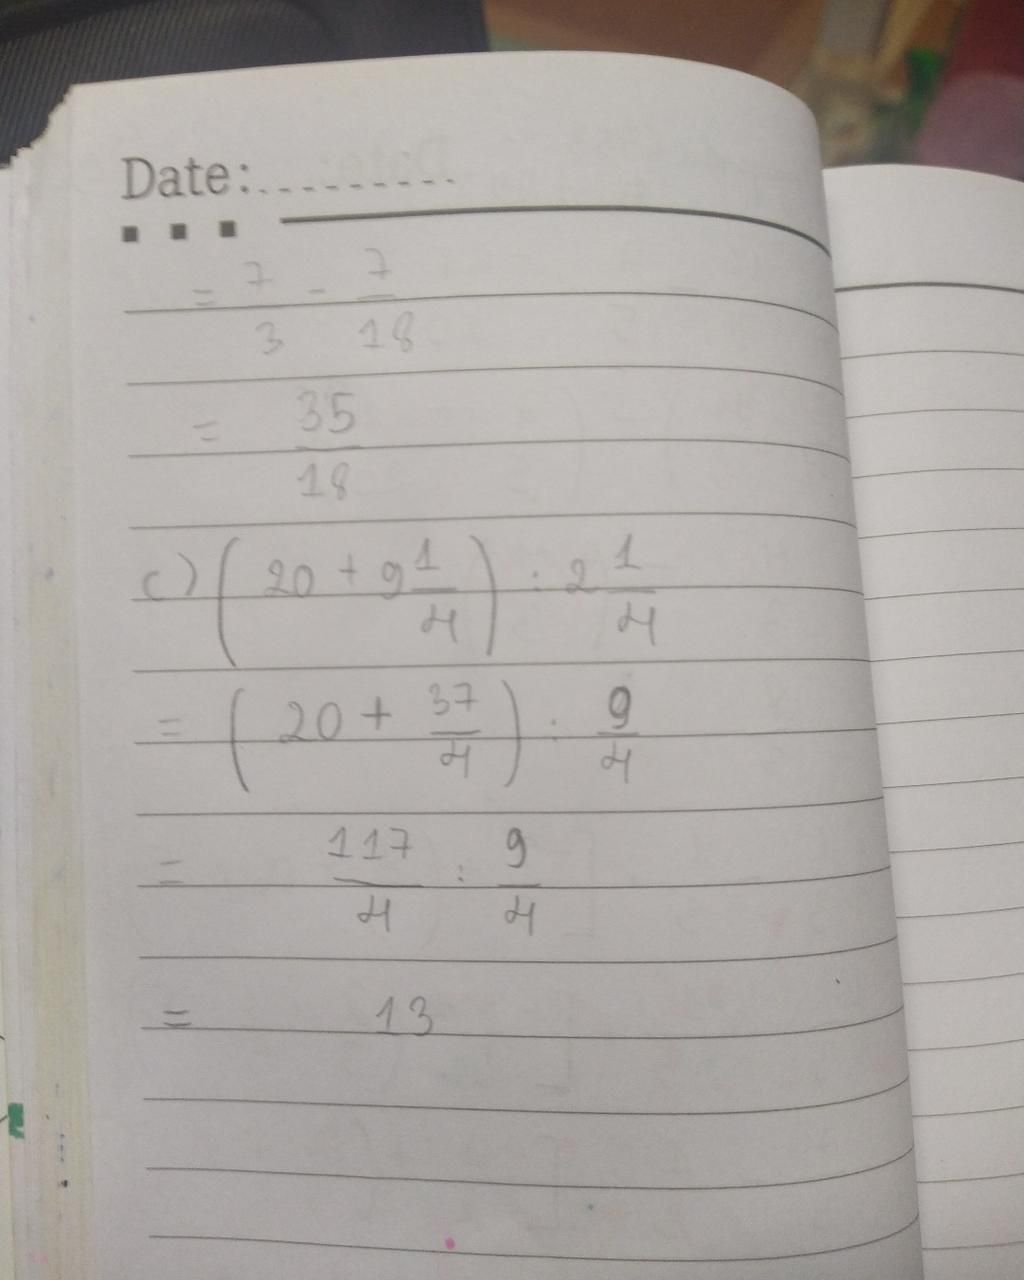 Date:..........
= 7/3 - 7/18
= 35/18
c) (20 + 9 1/4) : 2 1/4
= (20 + 37/4) : 9/4
= 117/4 : 9/4
= 13